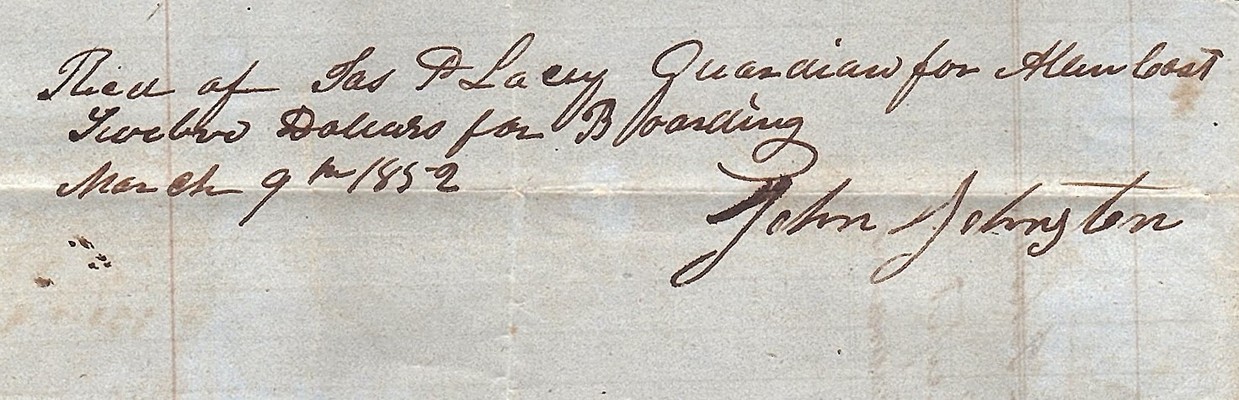 Recd of Jas P Lacey Guardian for Allen Cost
Twelve Dollars for Boarding
March 9th 1852
John Johnston